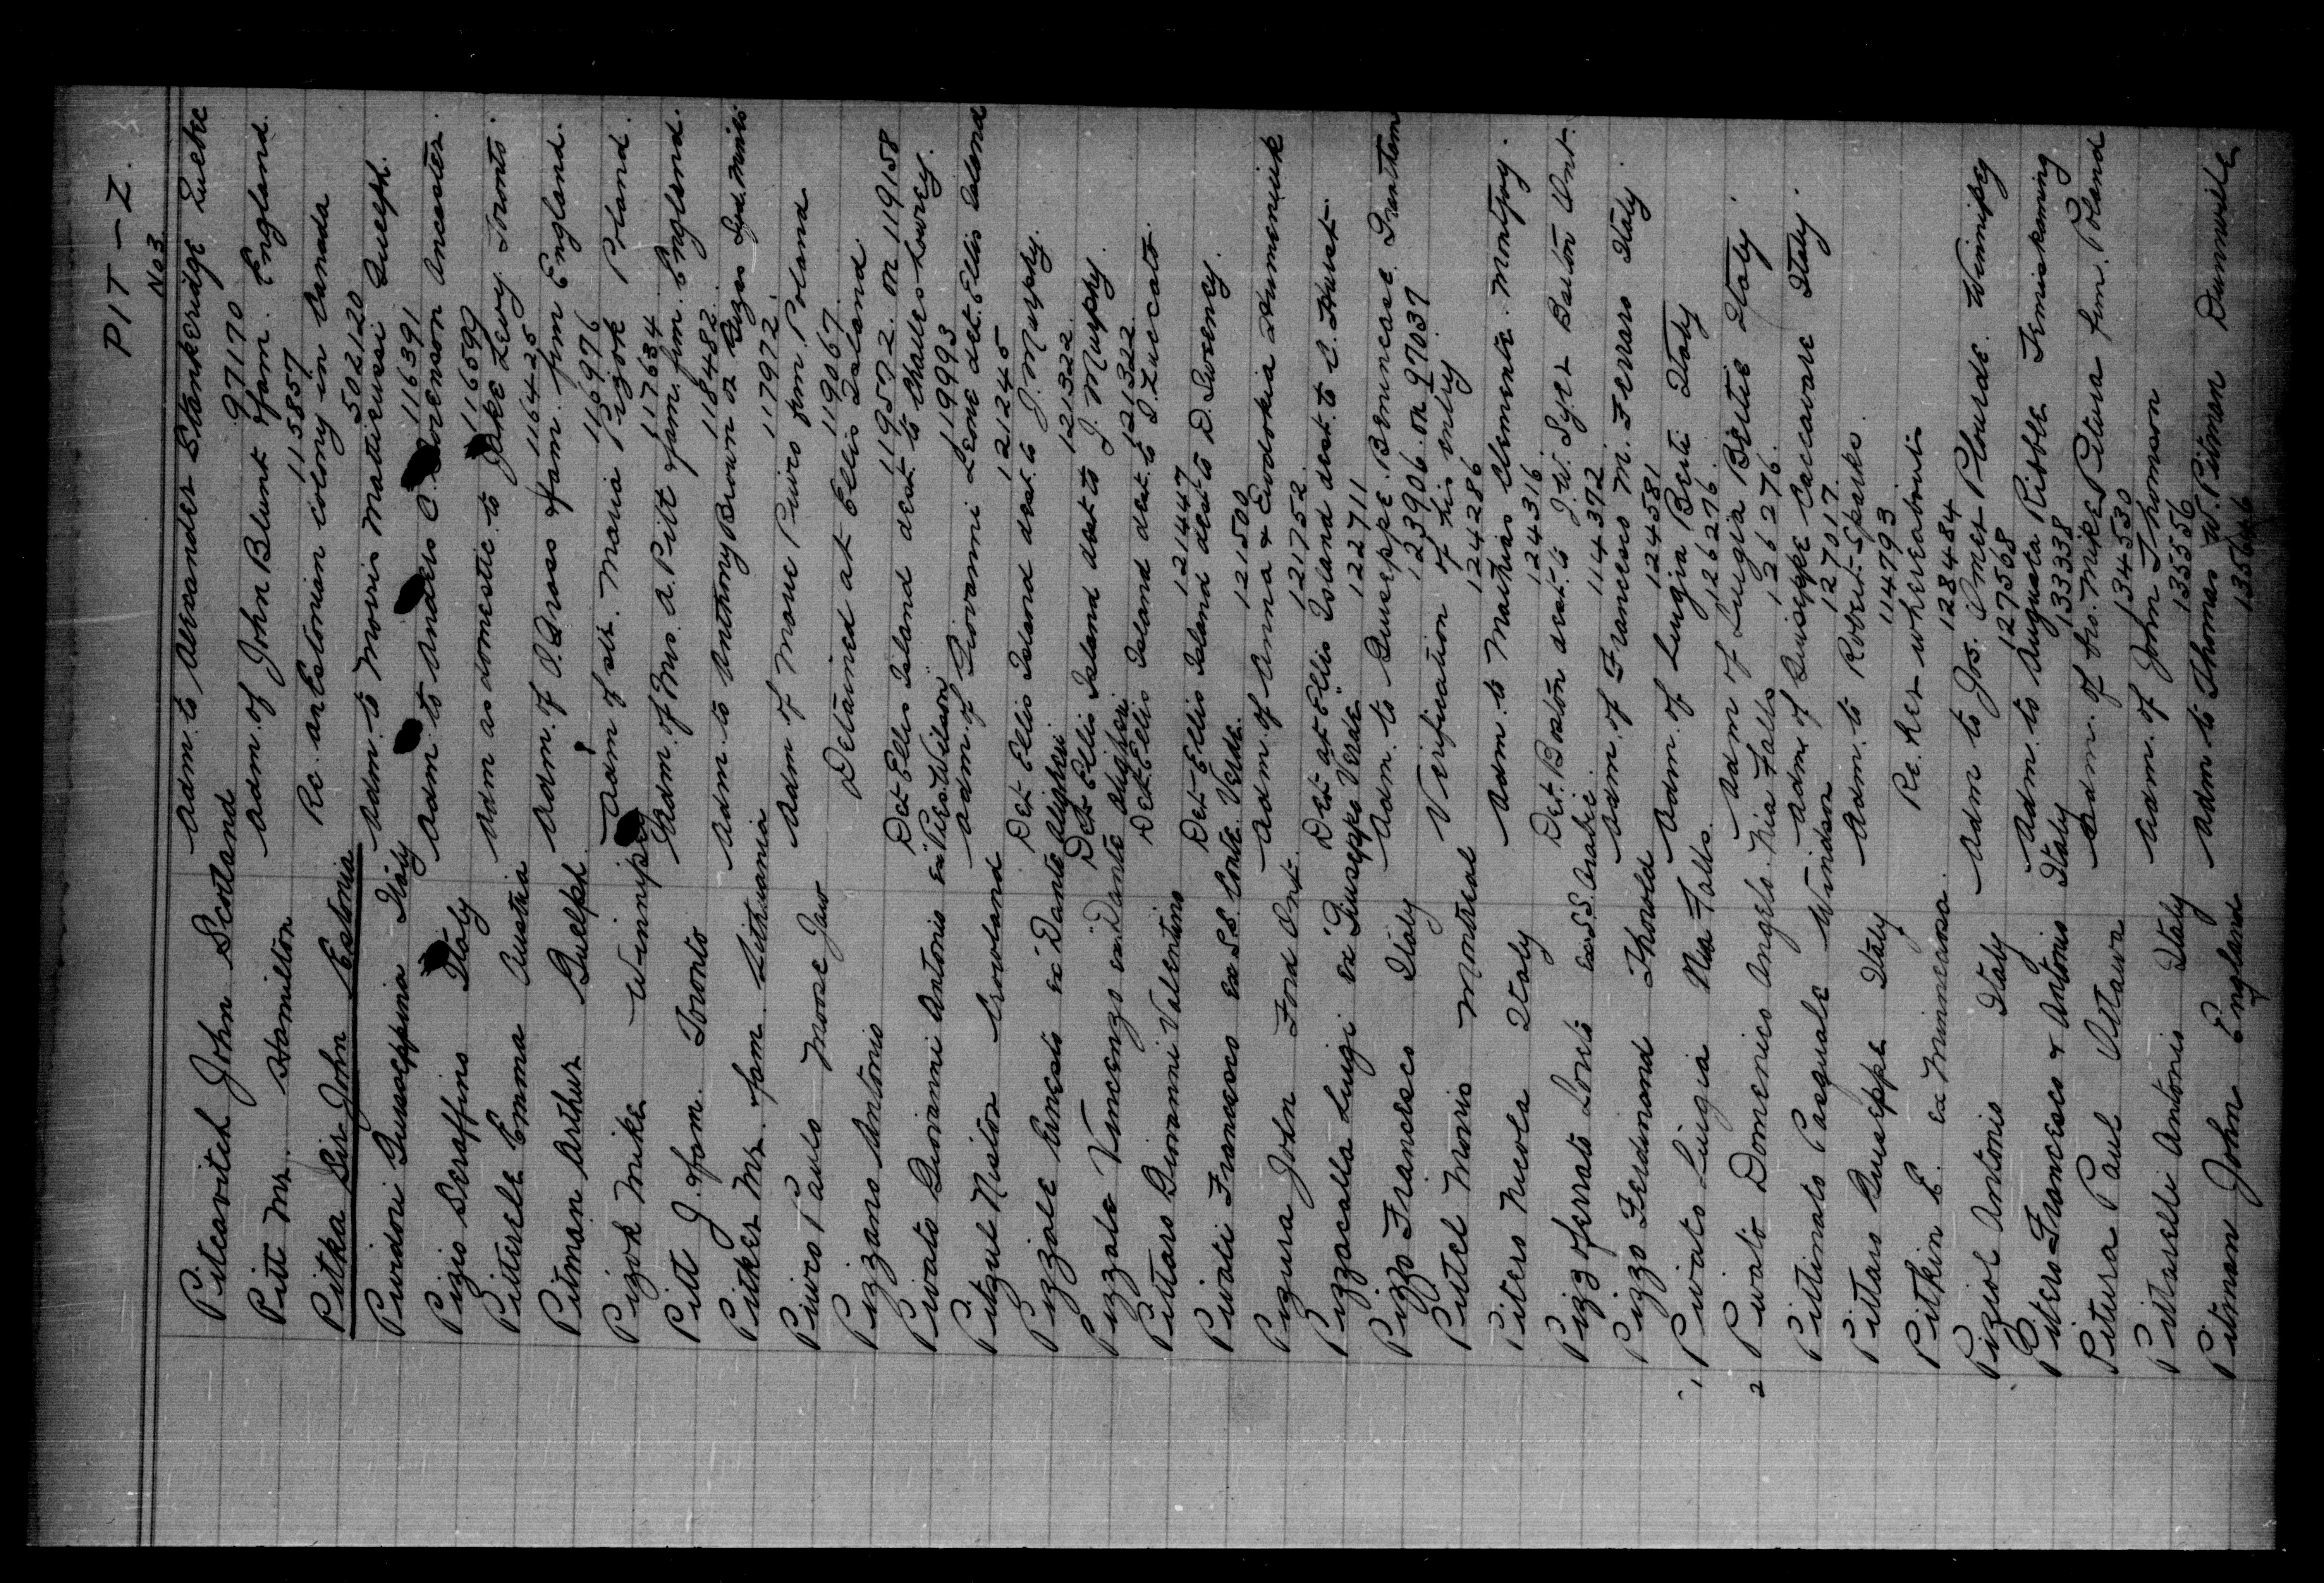 PIT – Z.
No 3
Pitcavitch John Scotland Adm. to Alexander Stankeridge Quebec
97170
Pitt Mr. Hamilton Adm. of John Blunt & fam. England.
115857
Pitka Sir John Estonia Re. an Estonian colony in Canada
502120
Pividori Guiseppina Italy Adm. to Moiris Mattieussi Guelph.
116391
Pizio Seraffino Italy Adm. to Andrew C. Sorenson Ancaster.
116599
Pitterele Emma Austria Adm as domestic to Jake Levy Toronto.
116425
Pitman Arthur Guelph. Adm. of O. Gross & fam. frm England.
116976
Pizok Mike Winnipeg Adm of sis. Maria Pizok Poland.
117634
Pitt J. & fam. Toronto Adm. of Mrs. A. Pitt & fam. frm. England.
118482
Pitker Mr. & fam. Lithuania Adm. to Anthony Brown or
117972.
Piwco Paulo Moose Jaw Adm of Mary Piwco frm Poland
119067.
Pizzano Antonio Detained at Ellis Island
119572. or 119158
Pivato Giovanni Antonio ex "Pres. Wilson" Det Ellis Island dest to Charles Lowrey.
119993
Pitzul Nistor Crowland Adm. of Giovanni Leone det. Ellis Island
121245
Pizzole Ernesto ex "Dante Alighieri Det Ellis Island dest. to J. Murphy.
121322.
Pizzolo Vincenzo ex "Dante Alighieri Det Ellis Island dest to J. Murphy.
121322
Pittaro Giovanni Valentino Det. Ellis Island dest. to I. Zuccato.
121447
Pivati Francesco ex S.S. Conte Verde. Det- Ellis Island dest to D. Sweeney.
121500
Pizura John Ford Ont. Adm. of Anna & Evdokia Dumeniuk
121752.
Pizzacalla Luigi ex "Giuseppe Verde" Det at Ellis Island dest. to C. Hurst.
122711
Pizzo Francesco Italy Adm. to Guiseppe Benincase Grantham
123906. or 97039
Pittel Morris Montreal Verification of his entry
124286
Pitero Nicola Italy Adm. to Mathias Clemente. Montjoy.
124316.
Pizzoferrato Loreto ex S.S. Arabic Det. Boston dest. to J.W. Syer Bolton Ont.
114372
Pizzo Ferdinand Thorold Adm. of Francesco M. Ferraro Italy.
124581
1, Pivato Luigia Nia Falls. Adm. of Luigia Berti Italy
126276.
2 Pivato Domenico Angelo. Nia Falls Adm of Luigia Bertie Italy.
126276.
Pittinato Pasquale Windsor Adm. of Guiseppe Caccavare Italy.
127017.
Pittaro Guiseppe Italy Adm. to Robert Sparks.
114793
Pitkin E. ex Minnewasa. Re. her whereabouts
128484
Piziol Antonio Italy Adm to Jos. Omer Plourde. Winnipeg
127568
Pitero Francesco & Antonio Italy Adm. to Augusta Ribble Temiskaming
133338
Pitura Paul Ottawa Adm. of bro. Mike Pitura frm. Poland
134530
Pittarelli Antonio Italy Adm. of John Thomson
135556
Pitman John England Adm to Thomas W. Pitman Dunnville
135646